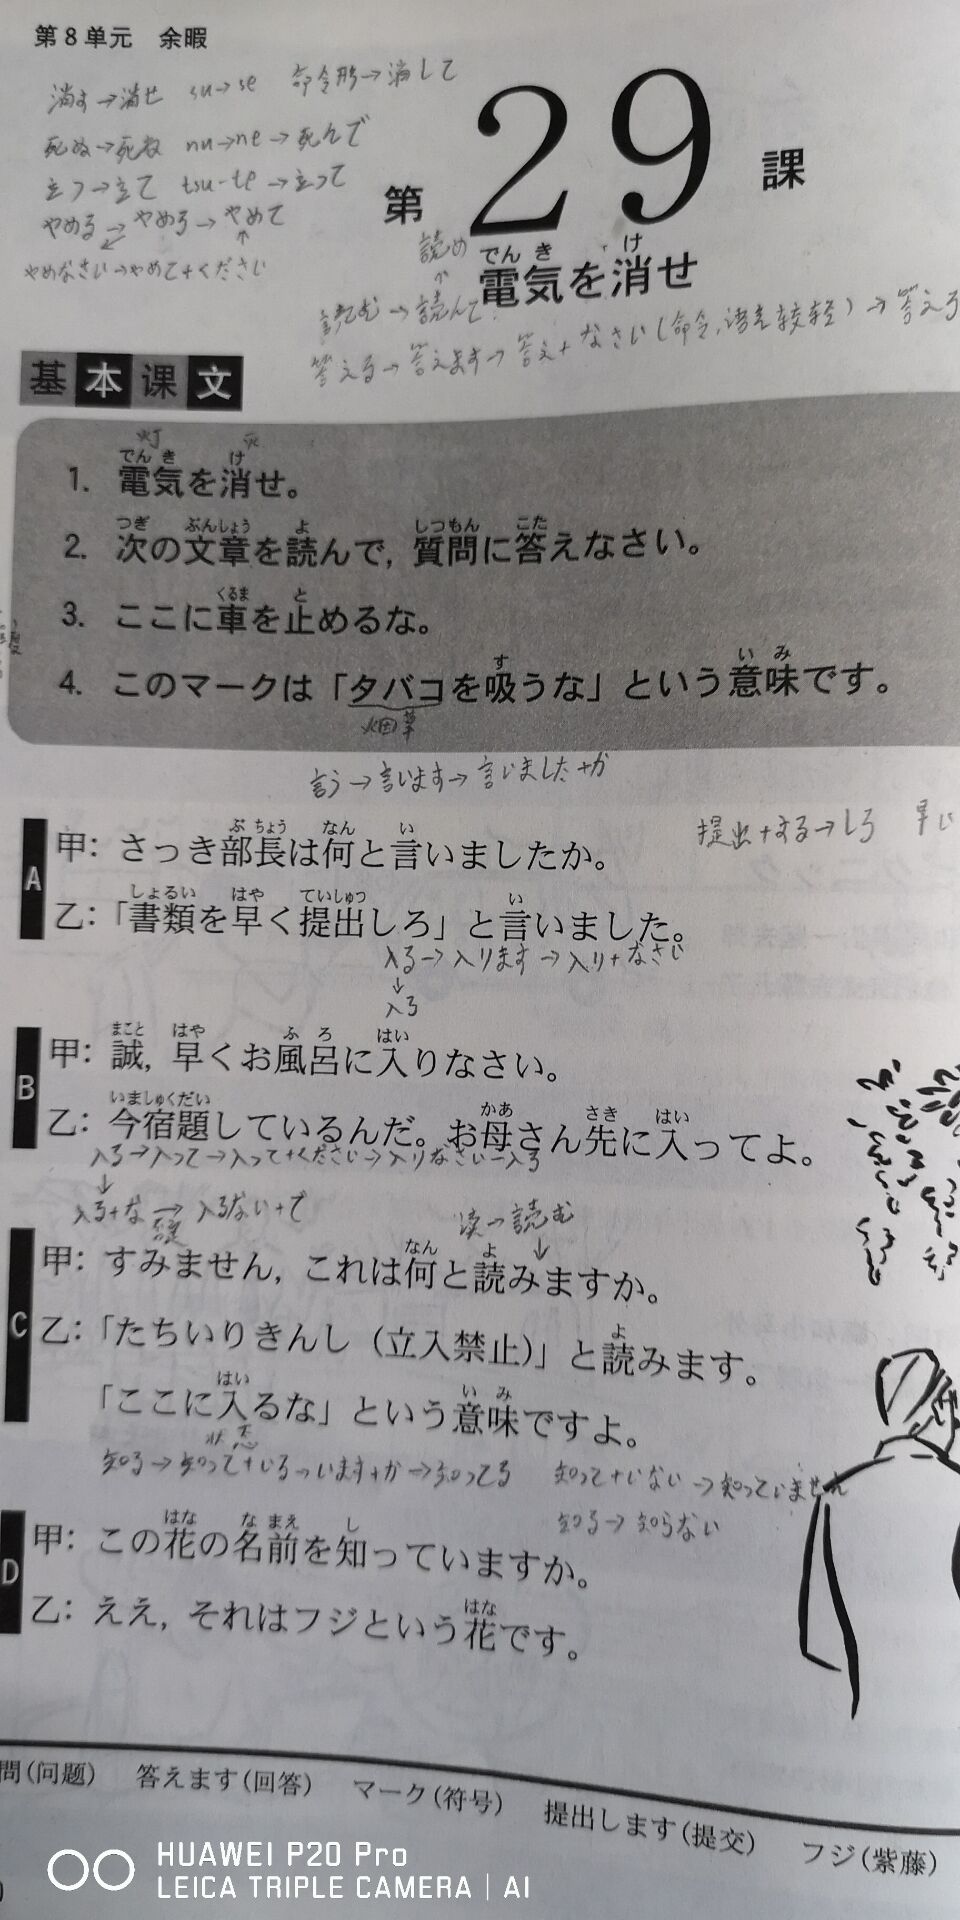 第8单元 余暇
消す→消せ su→se 命令形→消して
死ぬ→死ね nu→ne→死んで
立つ→立て tsu-te→立って
やめる→やめろ→やめて
やめなさい→やめて+ください
第29課
読め
電気を消せ
でん き け
読む→読んで
答える→答えます→答え+なさい(命令,语气较轻)→答えろ
基本课文
灯 灭
でん き け
1. 電気を消せ。
つぎ ぶんしょう よ しつもん こた
2. 次の文章を読んで,質問に答えなさい。
くるま と
3. ここに車を止めるな。
す い み
4. このマークは「タバコを吸うな」という意味です。
烟草
言う→言います→言いました+か
提出+する→しろ 早い
A
ぶ ちょう なん い
甲:さっき部長は何と言いましたか。
しょるい はや ていしゅつ い
乙:「書類を早く提出しろ」と言いました。
入る→入ります→入り+なさい
入ろ
B
まこと はや ふ ろ はい
甲:誠,早くお風呂に入りなさい。
いましゅくだい かあ さき はい
乙:今宿題しているんだ。お母さん先に入ってよ。
入る→入って→入って+ください→入りなさい-入ろ
入る+な→入るない+で
读→読む
C
なん よ
甲:すみません,これは何と読みますか。
よ
乙:「たちいりきんし(立入禁止)」と読みます。
はい い み
「ここに入るな」という意味ですよ。
状态
知る→知って+いる→います+か→知ってる 知って+いない→知っていません
知る→知らない
D
はな な まえ し
甲:この花の名前を知っていますか。
はな
乙:ええ,それはフジという花です。
問(问题) 答えます(回答) マーク(符号) 提出します(提交) フジ(紫藤)
HUAWEI P20 Pro
LEICA TRIPLE CAMERA | AI